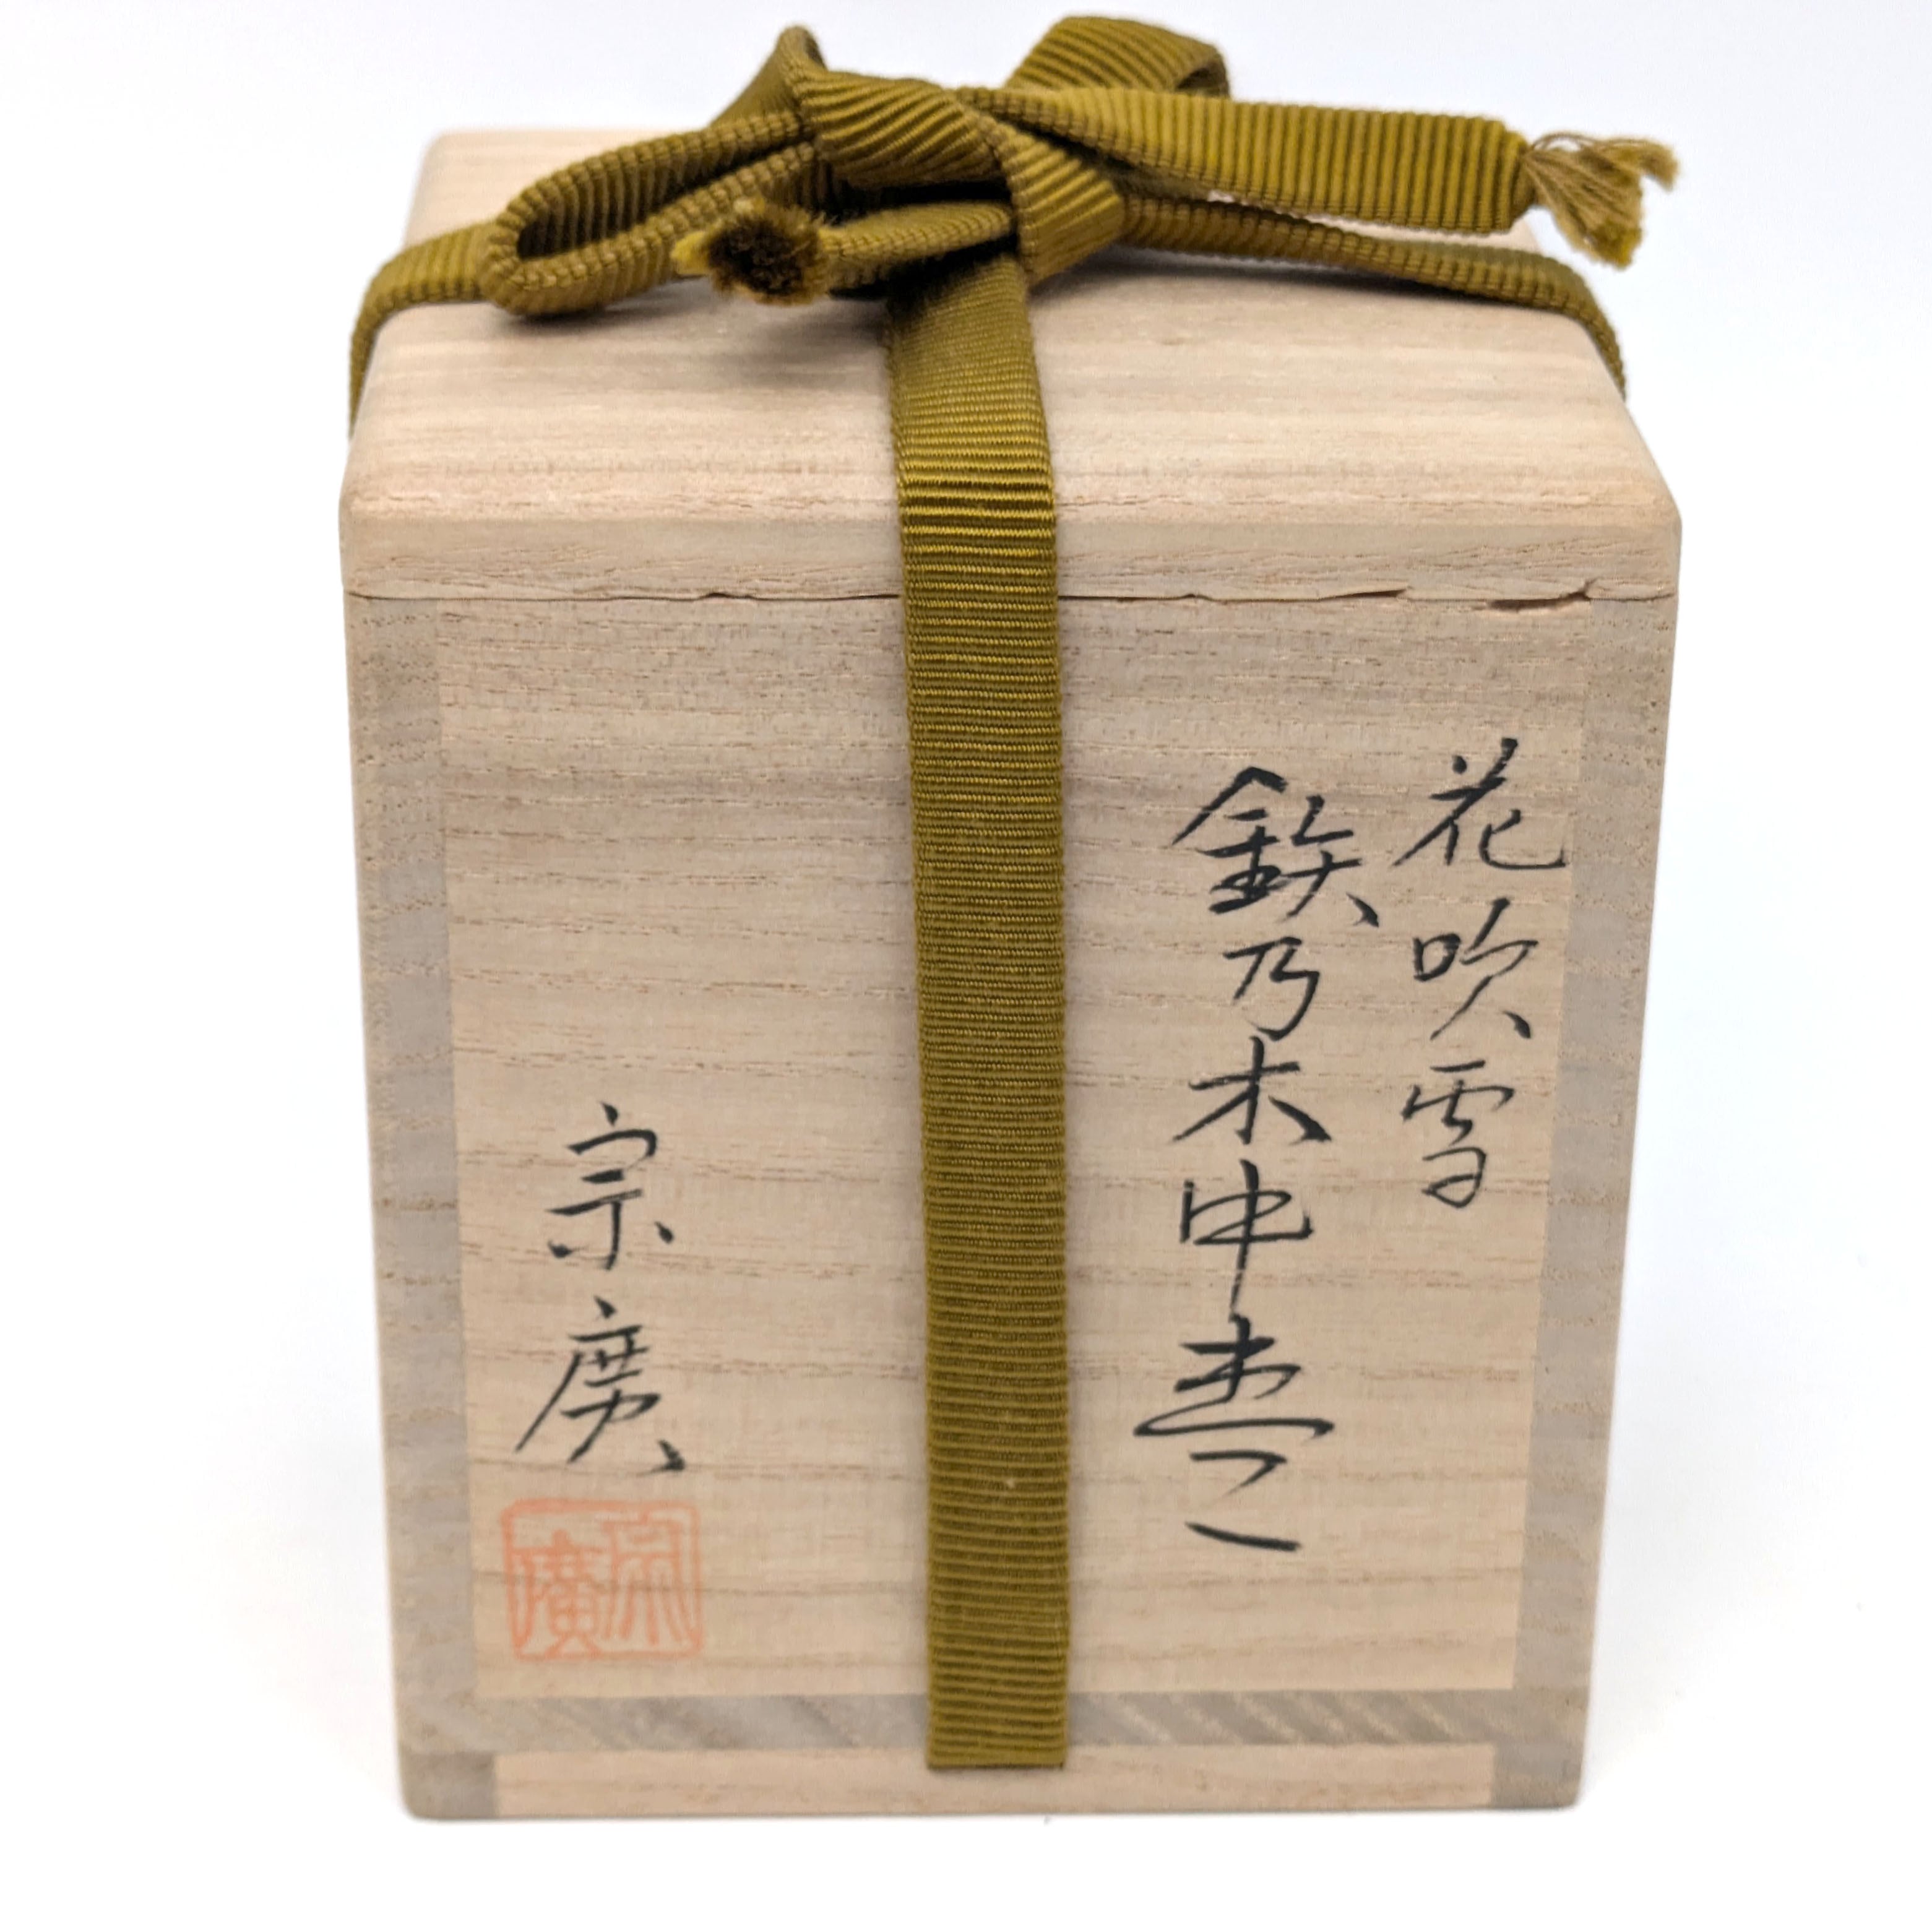 花吹雪
鉄乃木中棗
宗廣
宗廣